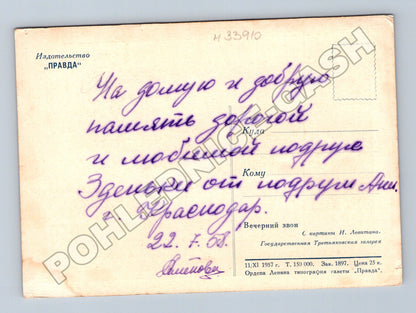 н 33910
Издательство
„ПРАВДА“
На домую и добрую
память дорогой
Куда
и любимой подруге
Кому
Зденьки от подруги Ани.
г. Краснодар.
22.7.58.
Вечерний звон
С картины И. Левитана.
Государственная Третьяковская галерея
11/XI 1957 г. Т. 150 000. Зак. 1897. Цена 25 к.
Ордена Ленина типография газеты „Правда“.
POHLEDNICE.CASH